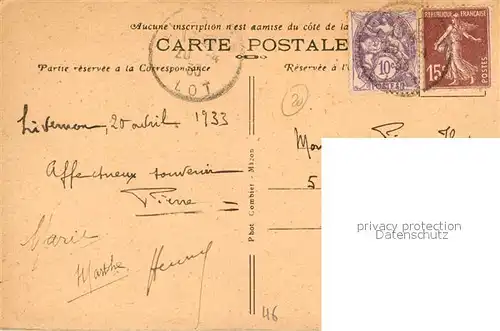 Aucune inscription n'est admise du côté de la
CARTE POSTALE
Partie réservée à la Correspondance
Réservée à l'
LOT
10c
POSTES
RÉPUBLIQUE FRANÇAISE
15c
POSTES
20
Livernon, 20 avril 1933
Affectueux souvenir
Pierre
Marie
Marthe
Phot Combier - Mâcon
5
privacy protection
Datenschutz
46